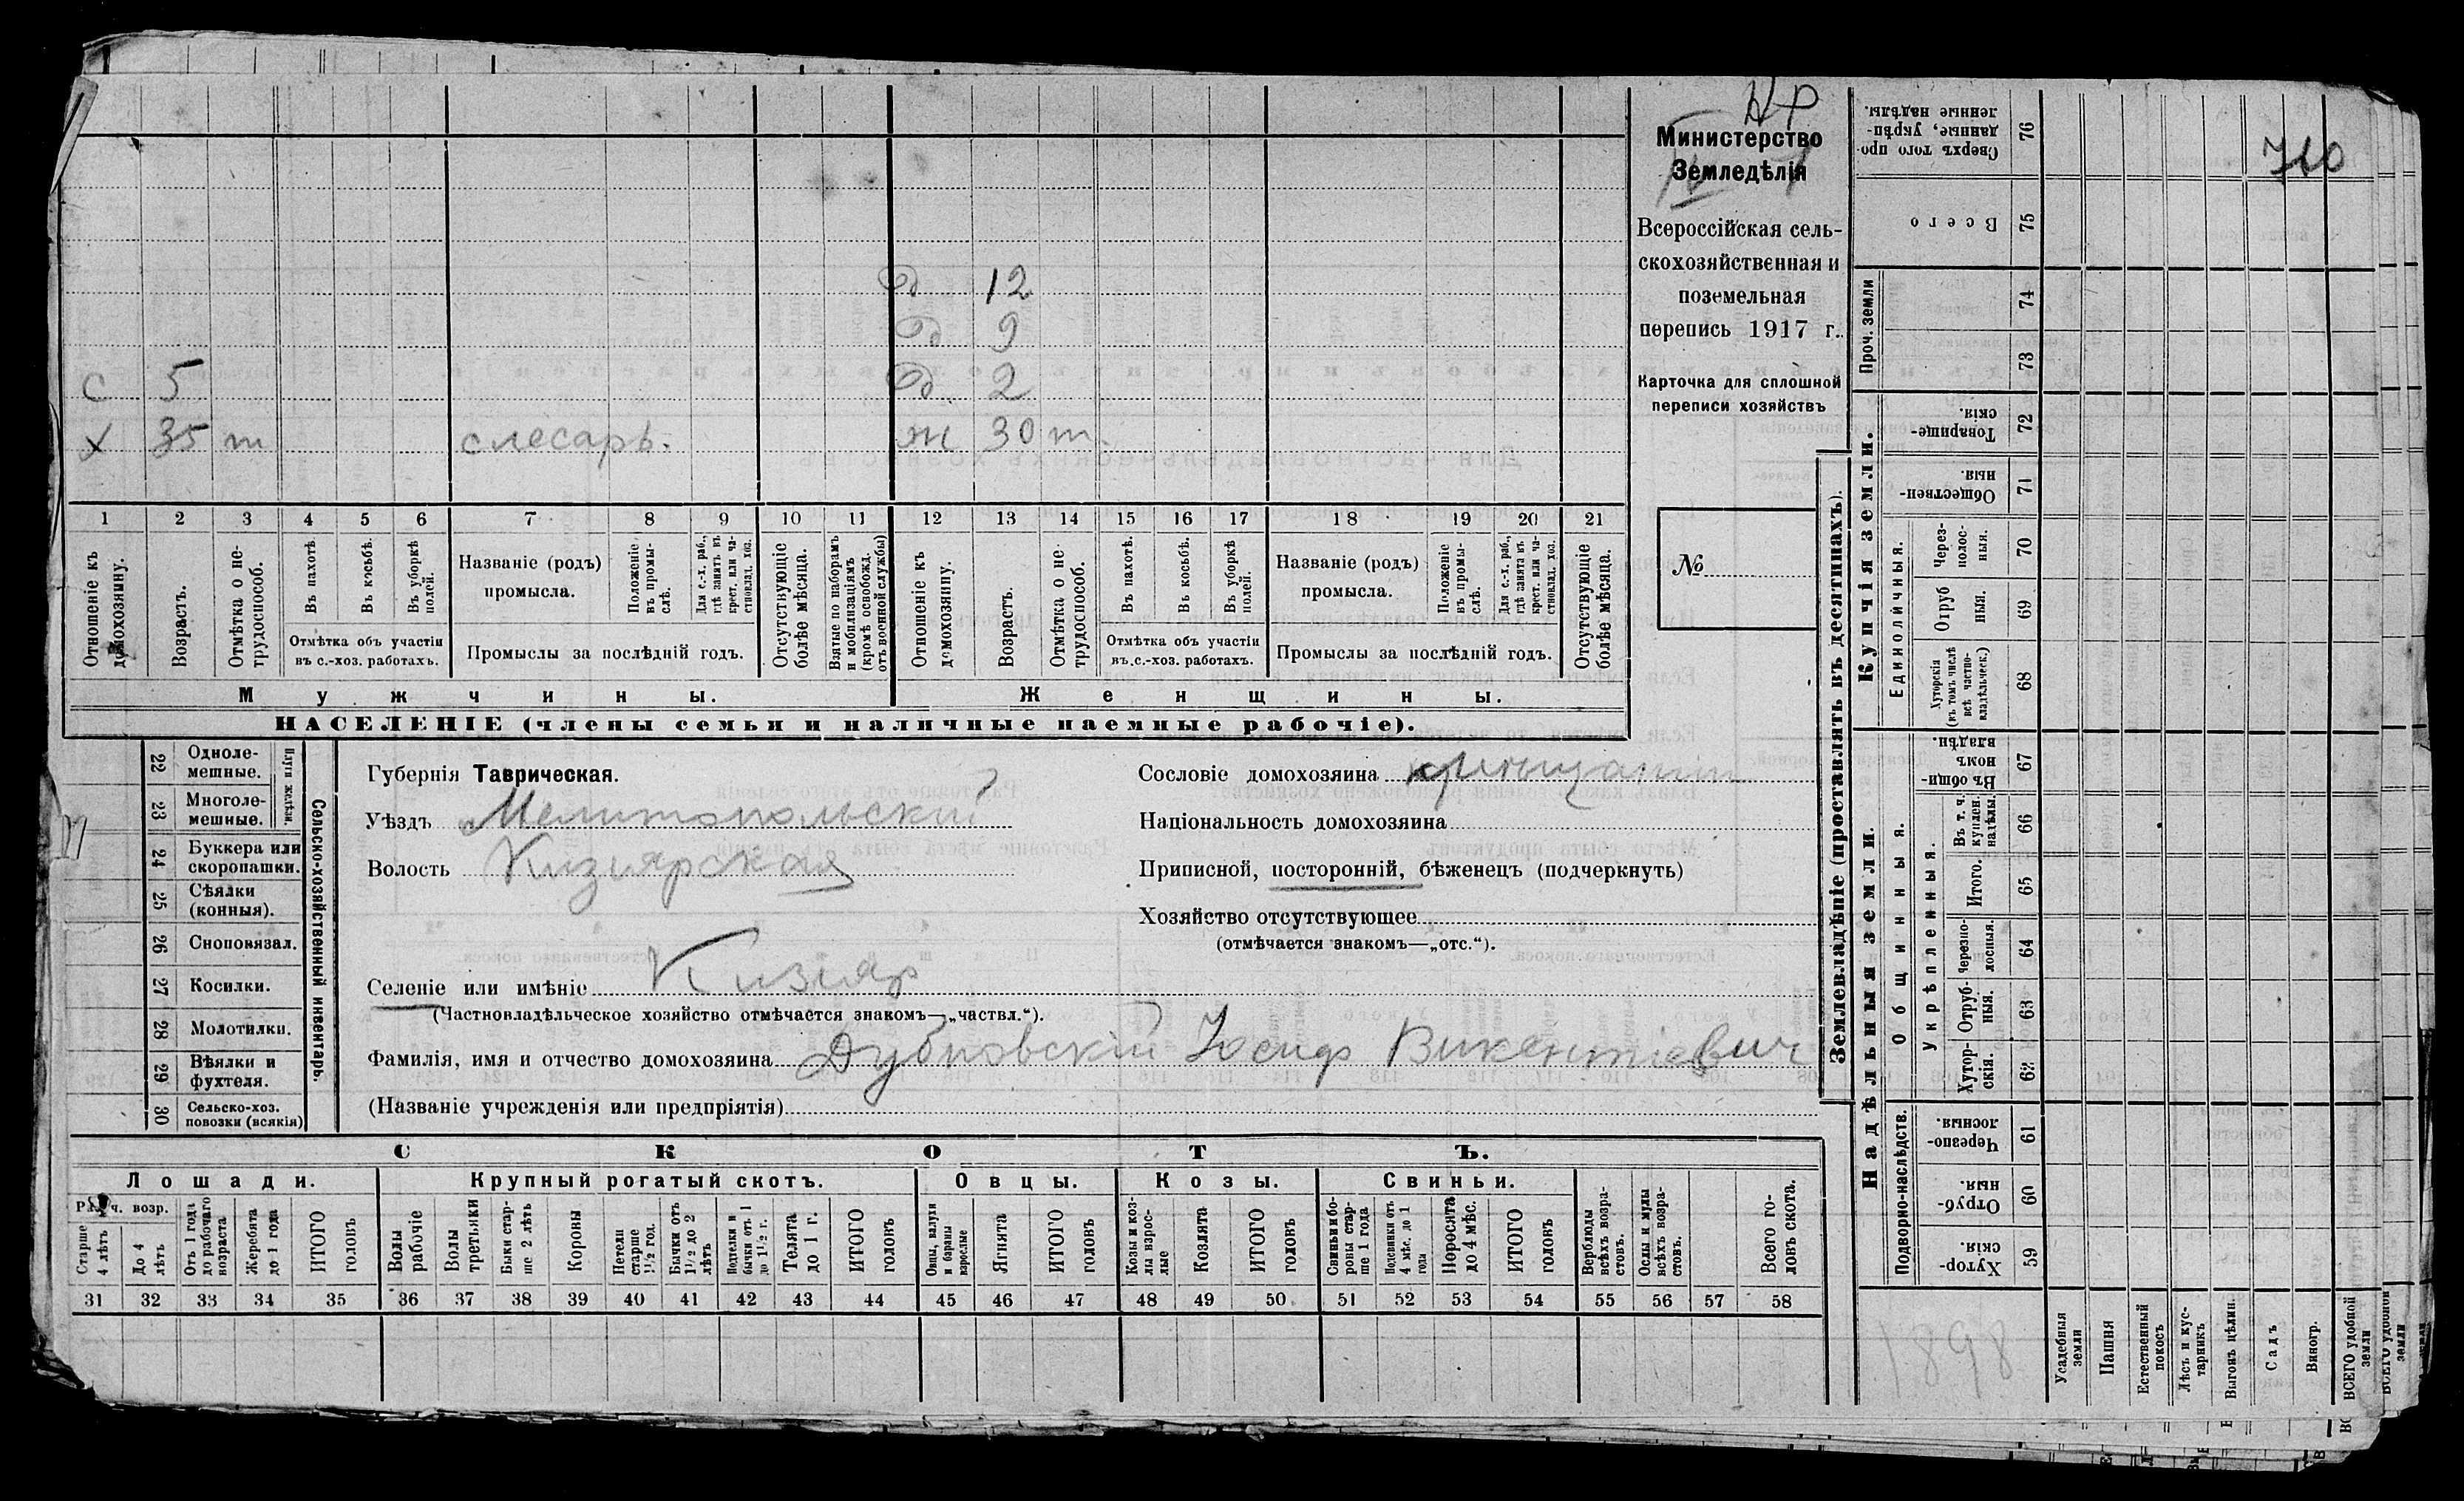 НР
Министерство
Земледѣлія
Всероссійская сель-
скохозяйственная и
поземельная
перепись 1917 г.
Карточка для сплошной
переписи хозяйствъ
№
710
д 12
д 9
с 5 д 2
х 35 т слесарь. ж 30 т.
1 2 3 4 5 6 7 8 9 10 11 12 13 14 15 16 17 18 19 20 21
Отношеніе къ домохозяину.
Возрастъ.
Отмѣтка о не-трудоспособ.
Въ пахотѣ
Въ косьбѣ.
Въ уборкѣ полей.
Отмѣтка объ участіи
въ с.-хоз. работахъ.
Названіе (родъ)
промысла.
Положеніе въ промы-слѣ.
Для с.-х. раб., гдѣ занятъ въ крест. или ча-стновлад. хоз.
Промыслы за послѣдній годъ.
Отсутствующіе болѣе мѣсяца.
Взятые по наборамъ и мобилизаціямъ (кромѣ освобожд. отъ военной службы)
Отношеніе къ домохозяину.
Возрастъ.
Отмѣтка о не трудоспособ.
Въ пахотѣ.
Въ косьбѣ.
Въ уборкѣ полей.
Отмѣтка объ участіи
въ с.-хоз. работахъ.
Названіе (родъ)
промысла.
Положеніе въ промы-слѣ.
Для с.-х. раб., гдѣ занята въ крест. или ча-стновлад. хоз.
Промыслы за послѣдній годъ.
Отсутствующіе болѣе мѣсяца.
Мужчины.
Женщины.
НАСЕЛЕНІЕ (члены семьи и наличные наемные рабочіе).
22 Одноле-мешные.
23 Многоле-мешные.
Плуги желѣзн.
24 Буккера или скоропашки.
25 Сѣялки (конныя).
26 Сноповязал.
27 Косилки.
28 Молотилки.
29 Вѣялки и фухтеля.
30 Сельско-хоз. повозки (всякія)
Сельско-хозяйственный инвентарь.
Губернія Таврическая.
Уѣздъ Мелитопольскій
Волость Кизиярская
Селеніе или имѣніе Кизияр
(Частновладѣльческое хозяйство отмѣчается знакомъ—„частвл.“).
Фамилія, имя и отчество домохозяина Дубновскій Іосиф Викентіевич
(Названіе учрежденія или предпріятія)
Сословіе домохозяина крестьянин
Національность домохозяина
Приписной, посторонній, бѣженецъ (подчеркнуть)
Хозяйство отсутствующее
(отмѣчается знакомъ—„отс.“).
СКОТЪ.
Лошади. Крупный рогатый скотъ. Овцы. Козы. Свиньи.
Раб ч. возр.
Старше 4 лѣтъ
До 4 лѣтъ
Отъ 1 года до рабочаго возраста
Жеребята до 1 года
ИТОГО головъ
Волы рабочіе
Волы третьяки
Быки стар-ше 2 лѣтъ
Коровы
Нетели старше 1½ год.
Бычки отъ 1½ до 2 лѣтъ
Подтелки и бычки отъ 1 до 1½ г.
Телята до 1 г.
ИТОГО головъ
Овцы, валухи и бараны взрослые
Ягнята
ИТОГО головъ
Козы и коз-лы взрос-лые
Козлята
ИТОГО головъ
Свиньи и бо-ровы стар-ше 1 года
Подсвинки отъ 4 мѣс. до 1 года
Поросята до 4 мѣс.
ИТОГО головъ
Верблюды всѣхъ возра-стовъ.
Ослы и мулы всѣхъ возра-стовъ.
Всего го-ловъ скота.
31 32 33 34 35 36 37 38 39 40 41 42 43 44 45 46 47 48 49 50 51 52 53 54 55 56 57 58
Землевладѣніе (проставлять въ десятинахъ).
Сверхъ того про-данные, укрѣп-ленные надѣлы. 76
Всего 75
Проч. земли
74
73
Купчія земли.
Товарище-скія. 72
Обществен-ныя 71
Единоличныя.
Через-полос-ныя. 70
Отруб ныя. 69
Хуторскія (въ томъ числѣ всѣ частно-владѣльческ.) 68
Надѣльныя земли.
Въ общин-номъ владѣн. 67
Общинныя.
Укрѣпленныя.
Въ т. ч. куплен. надѣлы. 66
Итого. 65
Черезпо-лосныя. 64
Отруб-ныя. 63
Хутор-скія. 62
Подворно-наслѣдств.
Черезпо-лосныя. 61
Отруб-ныя. 60
Хутор-скія. 59
1898
Усадебныя земли
Пашня
Естественный покосъ
Лѣсъ и кус-тарникъ
Выгонъ цѣлин.
Садъ
Виногр.
ВСЕГО удобной земли